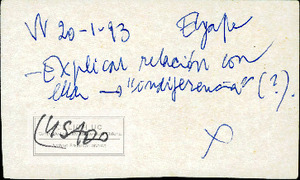 V 20-1-93
- Explicar relación con
ella → "indiferencia" (?).
USADO